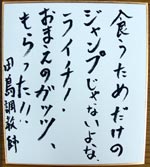 食うためだけの
ジャンプじゃないよな。
ライイチ!
おまえのガッツ、
もらった!!
田島調教師